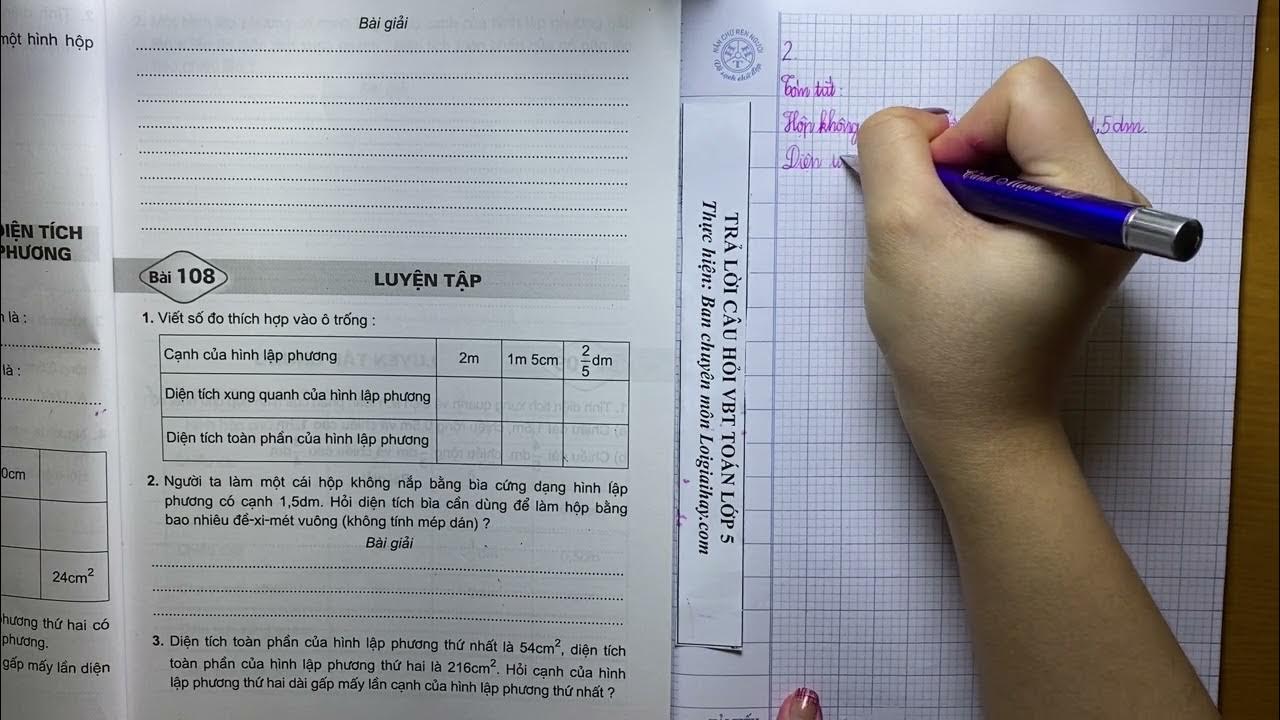 một hình hộp
DIỆN TÍCH
PHƯƠNG
là :
là :
0cm
24cm²
hương thứ hai có
phương.
gấp mấy lần diện
Bài giải
Bài 108
LUYỆN TẬP
1. Viết số đo thích hợp vào ô trống :
Cạnh của hình lập phương 2m 1m 5cm 2/5 dm
Diện tích xung quanh của hình lập phương
Diện tích toàn phần của hình lập phương
2. Người ta làm một cái hộp không nắp bằng bìa cứng dạng hình lập
phương có cạnh 1,5dm. Hỏi diện tích bìa cần dùng để làm hộp bằng
bao nhiêu đề-xi-mét vuông (không tính mép dán) ?
Bài giải
3. Diện tích toàn phần của hình lập phương thứ nhất là 54cm², diện tích
toàn phần của hình lập phương thứ hai là 216cm². Hỏi cạnh của hình
lập phương thứ hai dài gấp mấy lần cạnh của hình lập phương thứ nhất ?
TRẢ LỜI CÂU HỎI VBT TOÁN LỚP 5
Thực hiện: Ban chuyên môn Loigiaihay.com
NẮN CHỮ RÈN NGƯỜI
Vở sạch chữ đẹp
2.
Tóm tắt :
Hộp không 1,5dm.
Diện